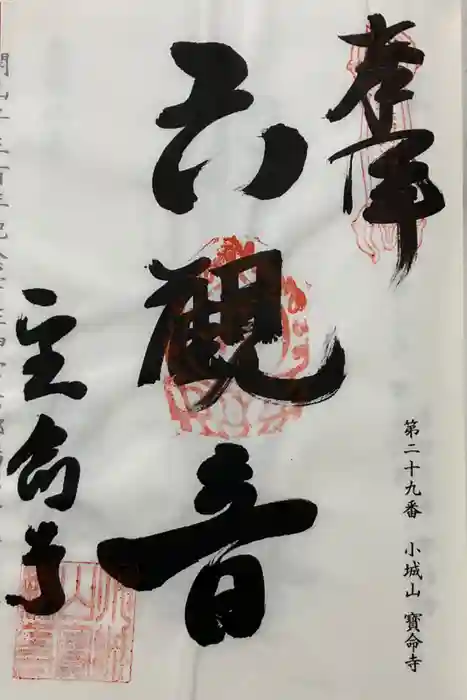 第二十九番 小城山 寳命寺
奉拝
六觀音
宝命寺